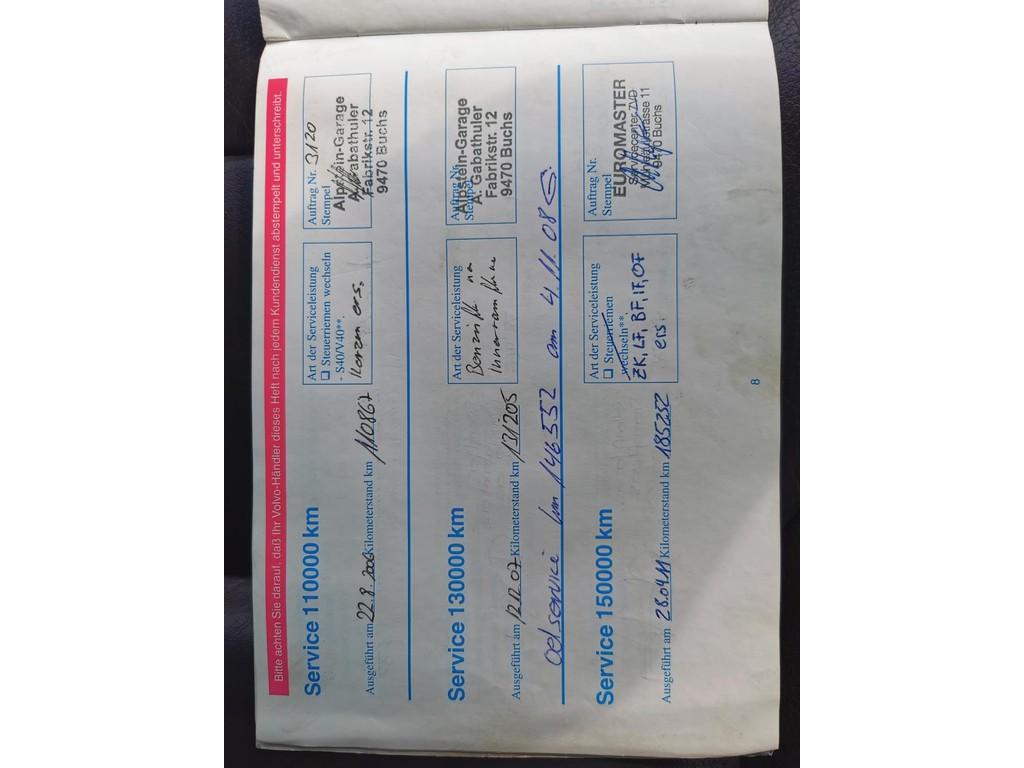 Bitte achten Sie darauf, daß Ihr Volvo-Händler dieses Heft nach jedem Kundendienst abstempelt und unterschreibt.
Service 110000 km
Ausgeführt am 22.8.2006 Kilometerstand km 110867
Art der Serviceleistung
❑ Steuerriemen wechseln
- S40/V40**.
Kerzen ers.
Auftrag Nr. 3120
Stempel
Alpstein-Garage
A. Gabathuler
Fabrikstr. 12
9470 Buchs
Service 130000 km
Ausgeführt am 12.12.07 Kilometerstand km 131205
Art der Serviceleistung
Auftrag Nr.
Stempel
Alpstein-Garage
A. Gabathuler
Fabrikstr. 12
9470 Buchs
Oelservice km 146552 am 4.11.08
Service 150000 km
Ausgeführt am 28.04.11 Kilometerstand km 185252
Art der Serviceleistung
❑ Steuerriemen
wechseln**.
ZK, LF, BF, IF, OF
ers.
Auftrag Nr.
Stempel
EUROMASTER
Servicecenter ZVD
9470 Buchs
8